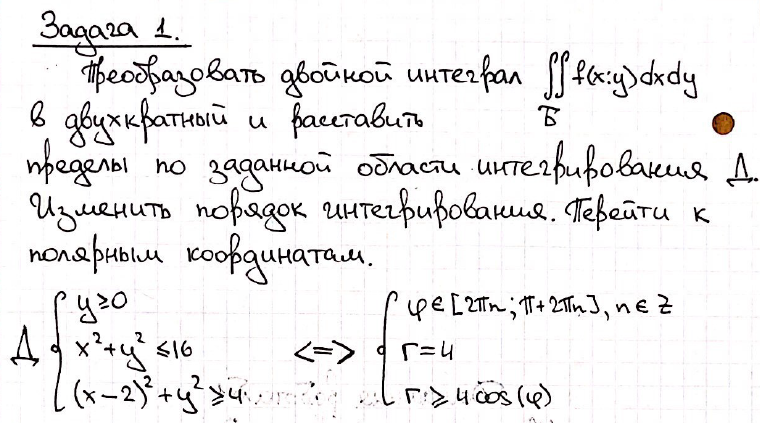 Задача 1.
Преобразовать двойной интеграл ∬f(x;y)dxdy
Б
в двухкратный и расставить
пределы по заданной области интегрирования Д.
Изменить порядок интегрирования. Перейти к
полярным координатам.
Д { y≥0 <=> { φ∈[2πn; π+2πn], n∈Z
x²+y²≤16 r=4
(x-2)²+y²≥4 r≥4cos(φ)